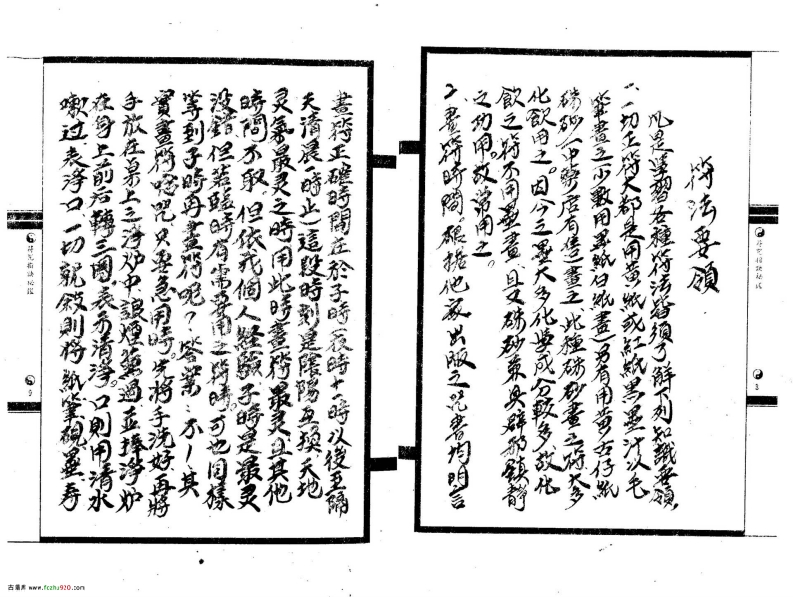 符法要領
凡是準習各種符法皆須了解下列知識要領,
1、一切正符大都是用黃紙或紅紙黑墨汁以毛
筆畫之少數用黑紙(白紙畫)另有用黃古仔紙
硃砂(中藥店有售)畫之、此種硃砂畫之符大多
化飲用之。因今之墨大多化學成分較多、故化
飲之符不用墨畫、且又硃砂兼具辟邪鎮靜
之功用。故常用之。
2、畫符時間。根據他家出版之咒書均明言
書符正確時間在於子時(夜時十一時以後至隔
天清晨一時止)這段時刻是陰陽互換、天地
灵氣最灵之時用此時畫符最灵、且其他
時間不取、但依我個人經驗、子時是最灵
沒錯、但若臨時有需要用之符時。可也同樣
等到子時再畫符呢?答案:不!其
實畫符唸咒只要急用時。先將手洗好、再將
手放在桌上之淨炉中讓煙薰過、並捧淨炉
在身上前后轉三圈表示清淨。口則用清水
嗽过表淨口、一切就敍則將紙筆硯墨壽
符咒指訣秘鑑
3
符咒指訣秘鑑
古籍库 www.fczhu920.com